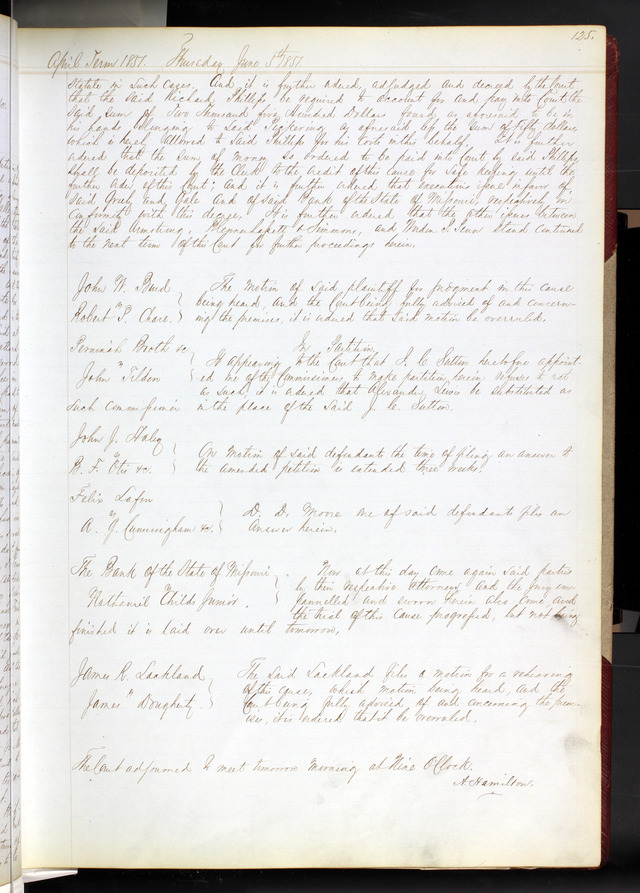 125.
April Term 1851. Thursday June 5th 1851
Statute in such cases. And it is further ordered, adjudged and decreed by the Court
that the said Richard Phillips be required to account for and pay into Court the
said sum of Two thousand five Hundred Dollars found as aforesaid to be in
his hands belonging to said Pickering as aforesaid less the sum of Fifty dollars
which is hereby allowed to said Phillips for his costs in this behalf. It is further
ordered that the sum of money so ordered to be paid into Court by said Phillips
shall be deposited by the Clerk to the credit of this cause for safe keeping until the
further order of this Court; And it is further ordered that executions issue in favor of
said and Gale and of said Bank of the State of Missouri respectively in
conformity with this decree. It is further ordered that the other issues between
the said Armstrong, & Simmons, and stand continued
to the next term of this Court for further proceedings herein.
John W. Burd
vs
Robert P. Chase.
The motion of said plaintiff for judgment in this cause
being heard, and the Court being fully advised of and concern-
ing the premises, it is ordered that said motion be overruled.
Jeremiah Booth &c.
vs
John Tilden
In Partition,
It appearing to the Court that J. C. Sutton heretofore appoint-
ed one of the Commissioners to make partition herein refuses to act
as such it is ordered that Alexander be substituted as
such commissioner in the place of the said J. C. Sutton.
John J. Haley
vs
B. F. Otis &c.
On motion of said defendants the time of filing an answer to
the amended petition is extended three weeks.
Felix Lafon
vs
A. Y. Cunningham &c.
D. D. Moore one of said defendants files an
Answer herein.
The Bank of the State of Missouri
vs
Nathaniel Childs Junior.
Now at this day come again said parties
by their respective attorneys, and the jury em-
pannelled and sworn herein also come and
the trial of this cause progressed, but not being
finished it is laid over until tomorrow.
James R. Lackland
vs
James Dougherty.
The said Lackland files a motion for a rehearing
of this cause, which motion being heard, and the
Court being fully advised of and concerning the prem-
ises, it is ordered that it be overruled.
The Court adjourned to meet tomorrow morning at Nine O'Clock.
A. Hamilton.